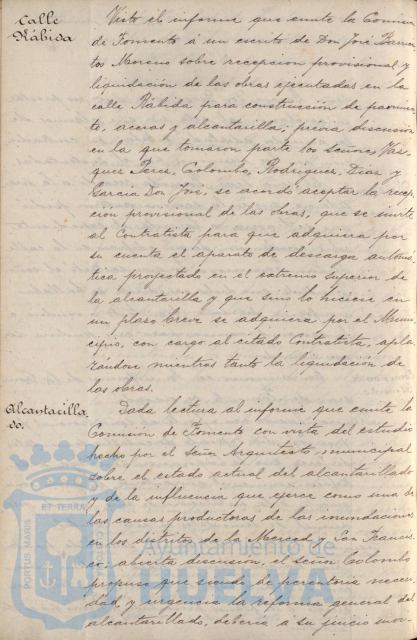 Calle
Rábida
Visto el informe que emite la Comisión
de Fomento á un escrito de Don José Barran-
tos Moreno sobre recepcion provisional y
liquidación de las obras ejecutadas en la
calle Rábida para construcción de pavimen-
to, aceras y alcantarilla; previa discusión
en la que tomaron parte los señores Váz-
quez Perez, Colombo, Rodriguez, Diaz y
Garcia Don José, se acordó aceptar la recep-
ción provisional de las obras, que se invite
al Contratista para que adquiera por
su cuenta el aparato de descarga automá-
tica proyectado en el extremo superior de
la alcantarilla y que sino lo hiciese en
un plazo breve se adquiera por el Muni-
cipio, con cargo al citado Contratista, apla-
zándose mientras tanto la liquidación de
las obras.
Alcantarilla
do.
Dada lectura al informe que emite la
Comisión de Fomento con vista del estudio
hecho por el Señor Arquitecto municipal
sobre el estado actual del alcantarillado
y de la influencia que ejerce como una de
las causas productoras de las inundaciones
en los distritos de la Merced y San Francis-
co, abierta discusion, el señor Colombo
propuso que siendo de perentoria necesi-
dad y urgencia la reforma general del
alcantarillado, debería a su juicio
PORTUS MARIS ET TERRAE CUSTODIA
Ayuntamiento de
HUELVA